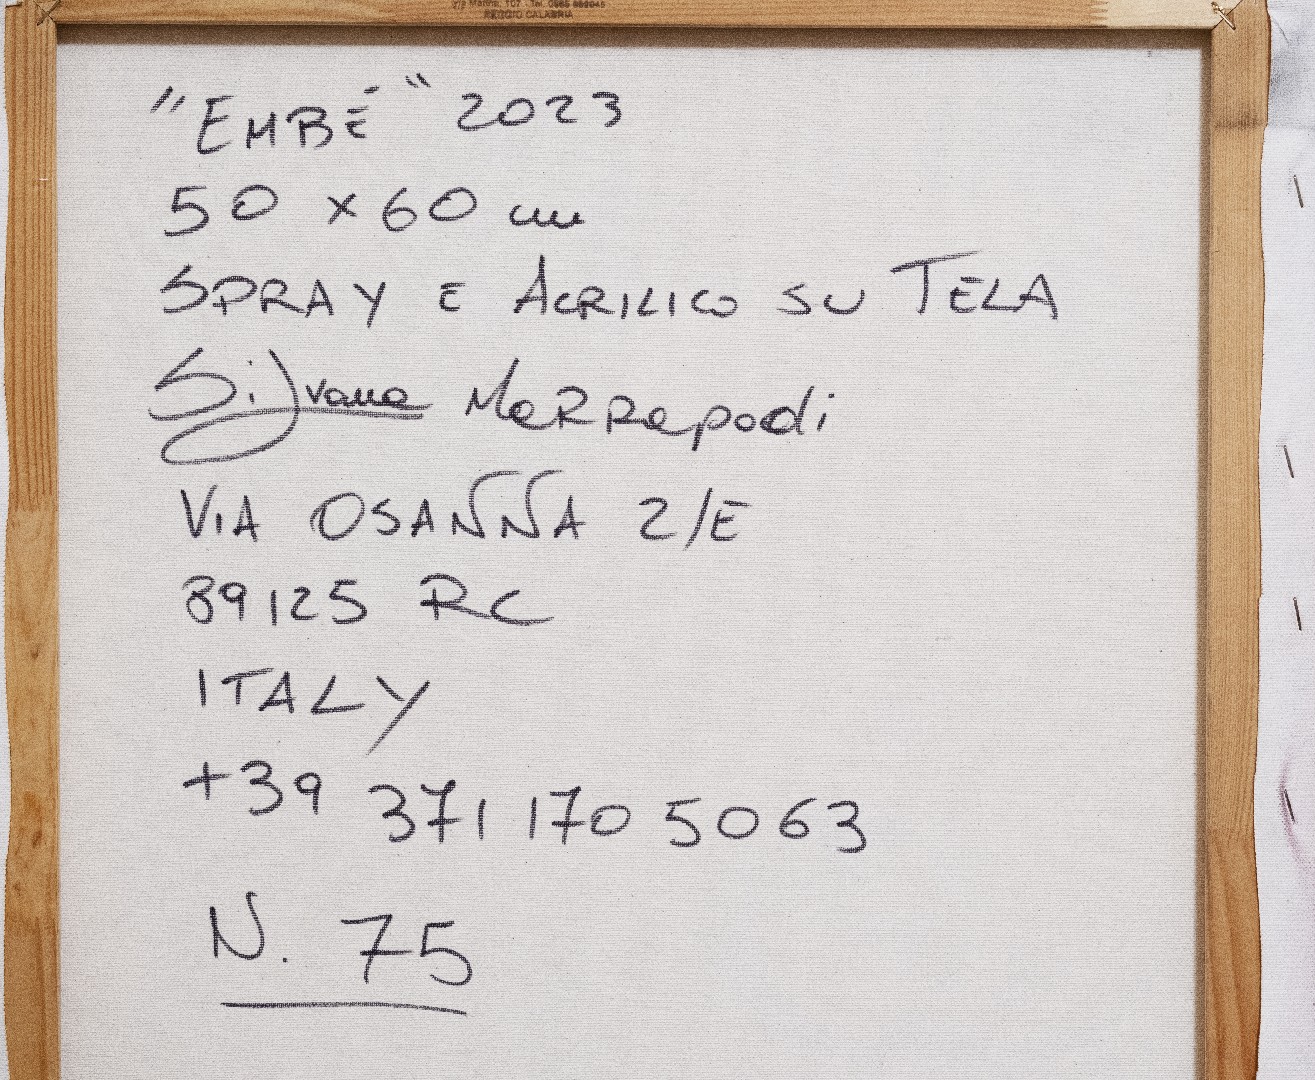 Via Marina, 107 - Tel. 0965
REGGIO CALABRIA
"EMBÉ" 2023
50 x 60 cm
SPRAY E ACRILICO SU TELA
Silvana Marrapodi
VIA OSANNA 2/E
89125 RC
ITALY
+39 371 170 5063
N. 75